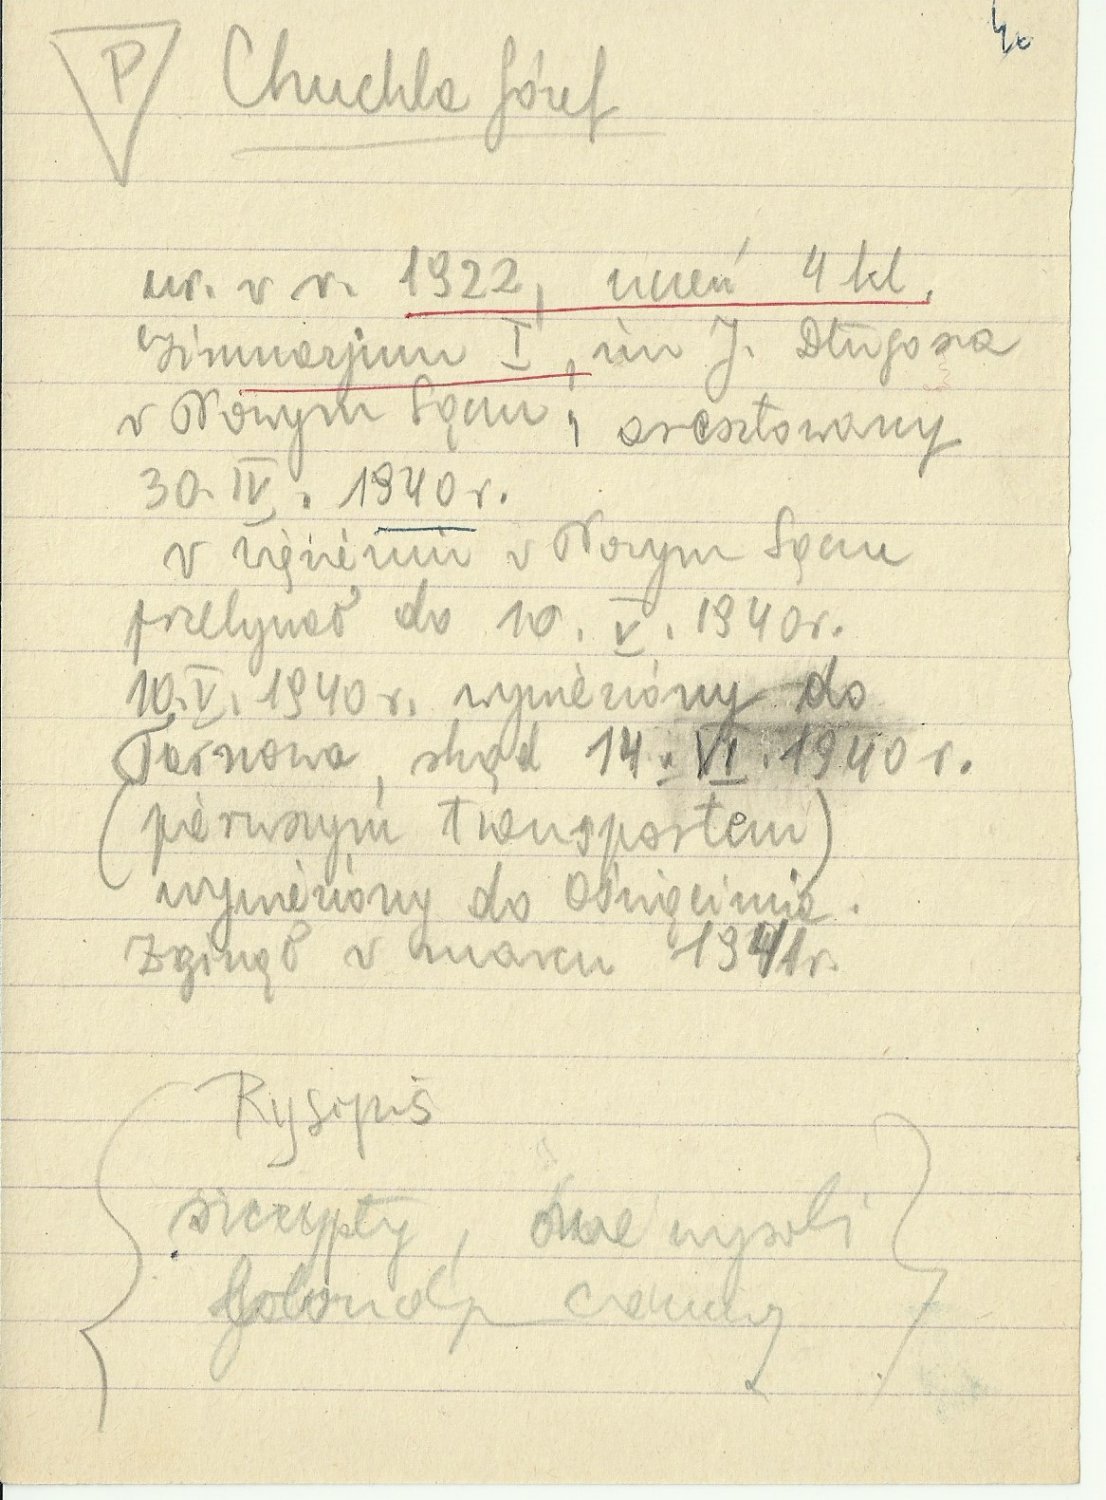 P Chuchla Józef
ur. w r. 1922, uczeń 4 kl.
Gimnazjum I, im J. Długosza
w Nowym Sączu; aresztowany
30. IV. 1940 r.
w więzieniu w Nowym Sączu
przebywał do 10. V. 1940 r.
10. V. 1940 r. wywieziony do
Tarnowa, skąd 14. VI. 1940 r.
(pierwszym transportem)
wywieziony do Oświęcimia.
Zginął w marcu 1941 r.
Rysopis
szczupły,